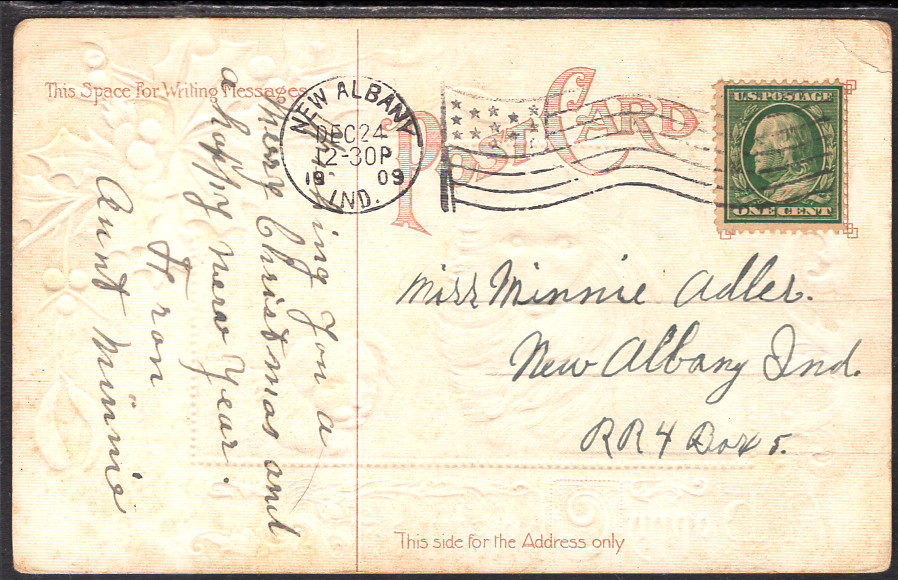 This Space For Writing Messages
POST CARD
NEW ALBANY
DEC 24
12-30P
19 09
IND.
U.S. POSTAGE
ONE CENT
ing You a
Merry Christmas and
a happy new Year.
From
Aunt Minnie
Miss Minnie Adler.
New Albany Ind.
RR 4 Box 5.
This side for the Address only